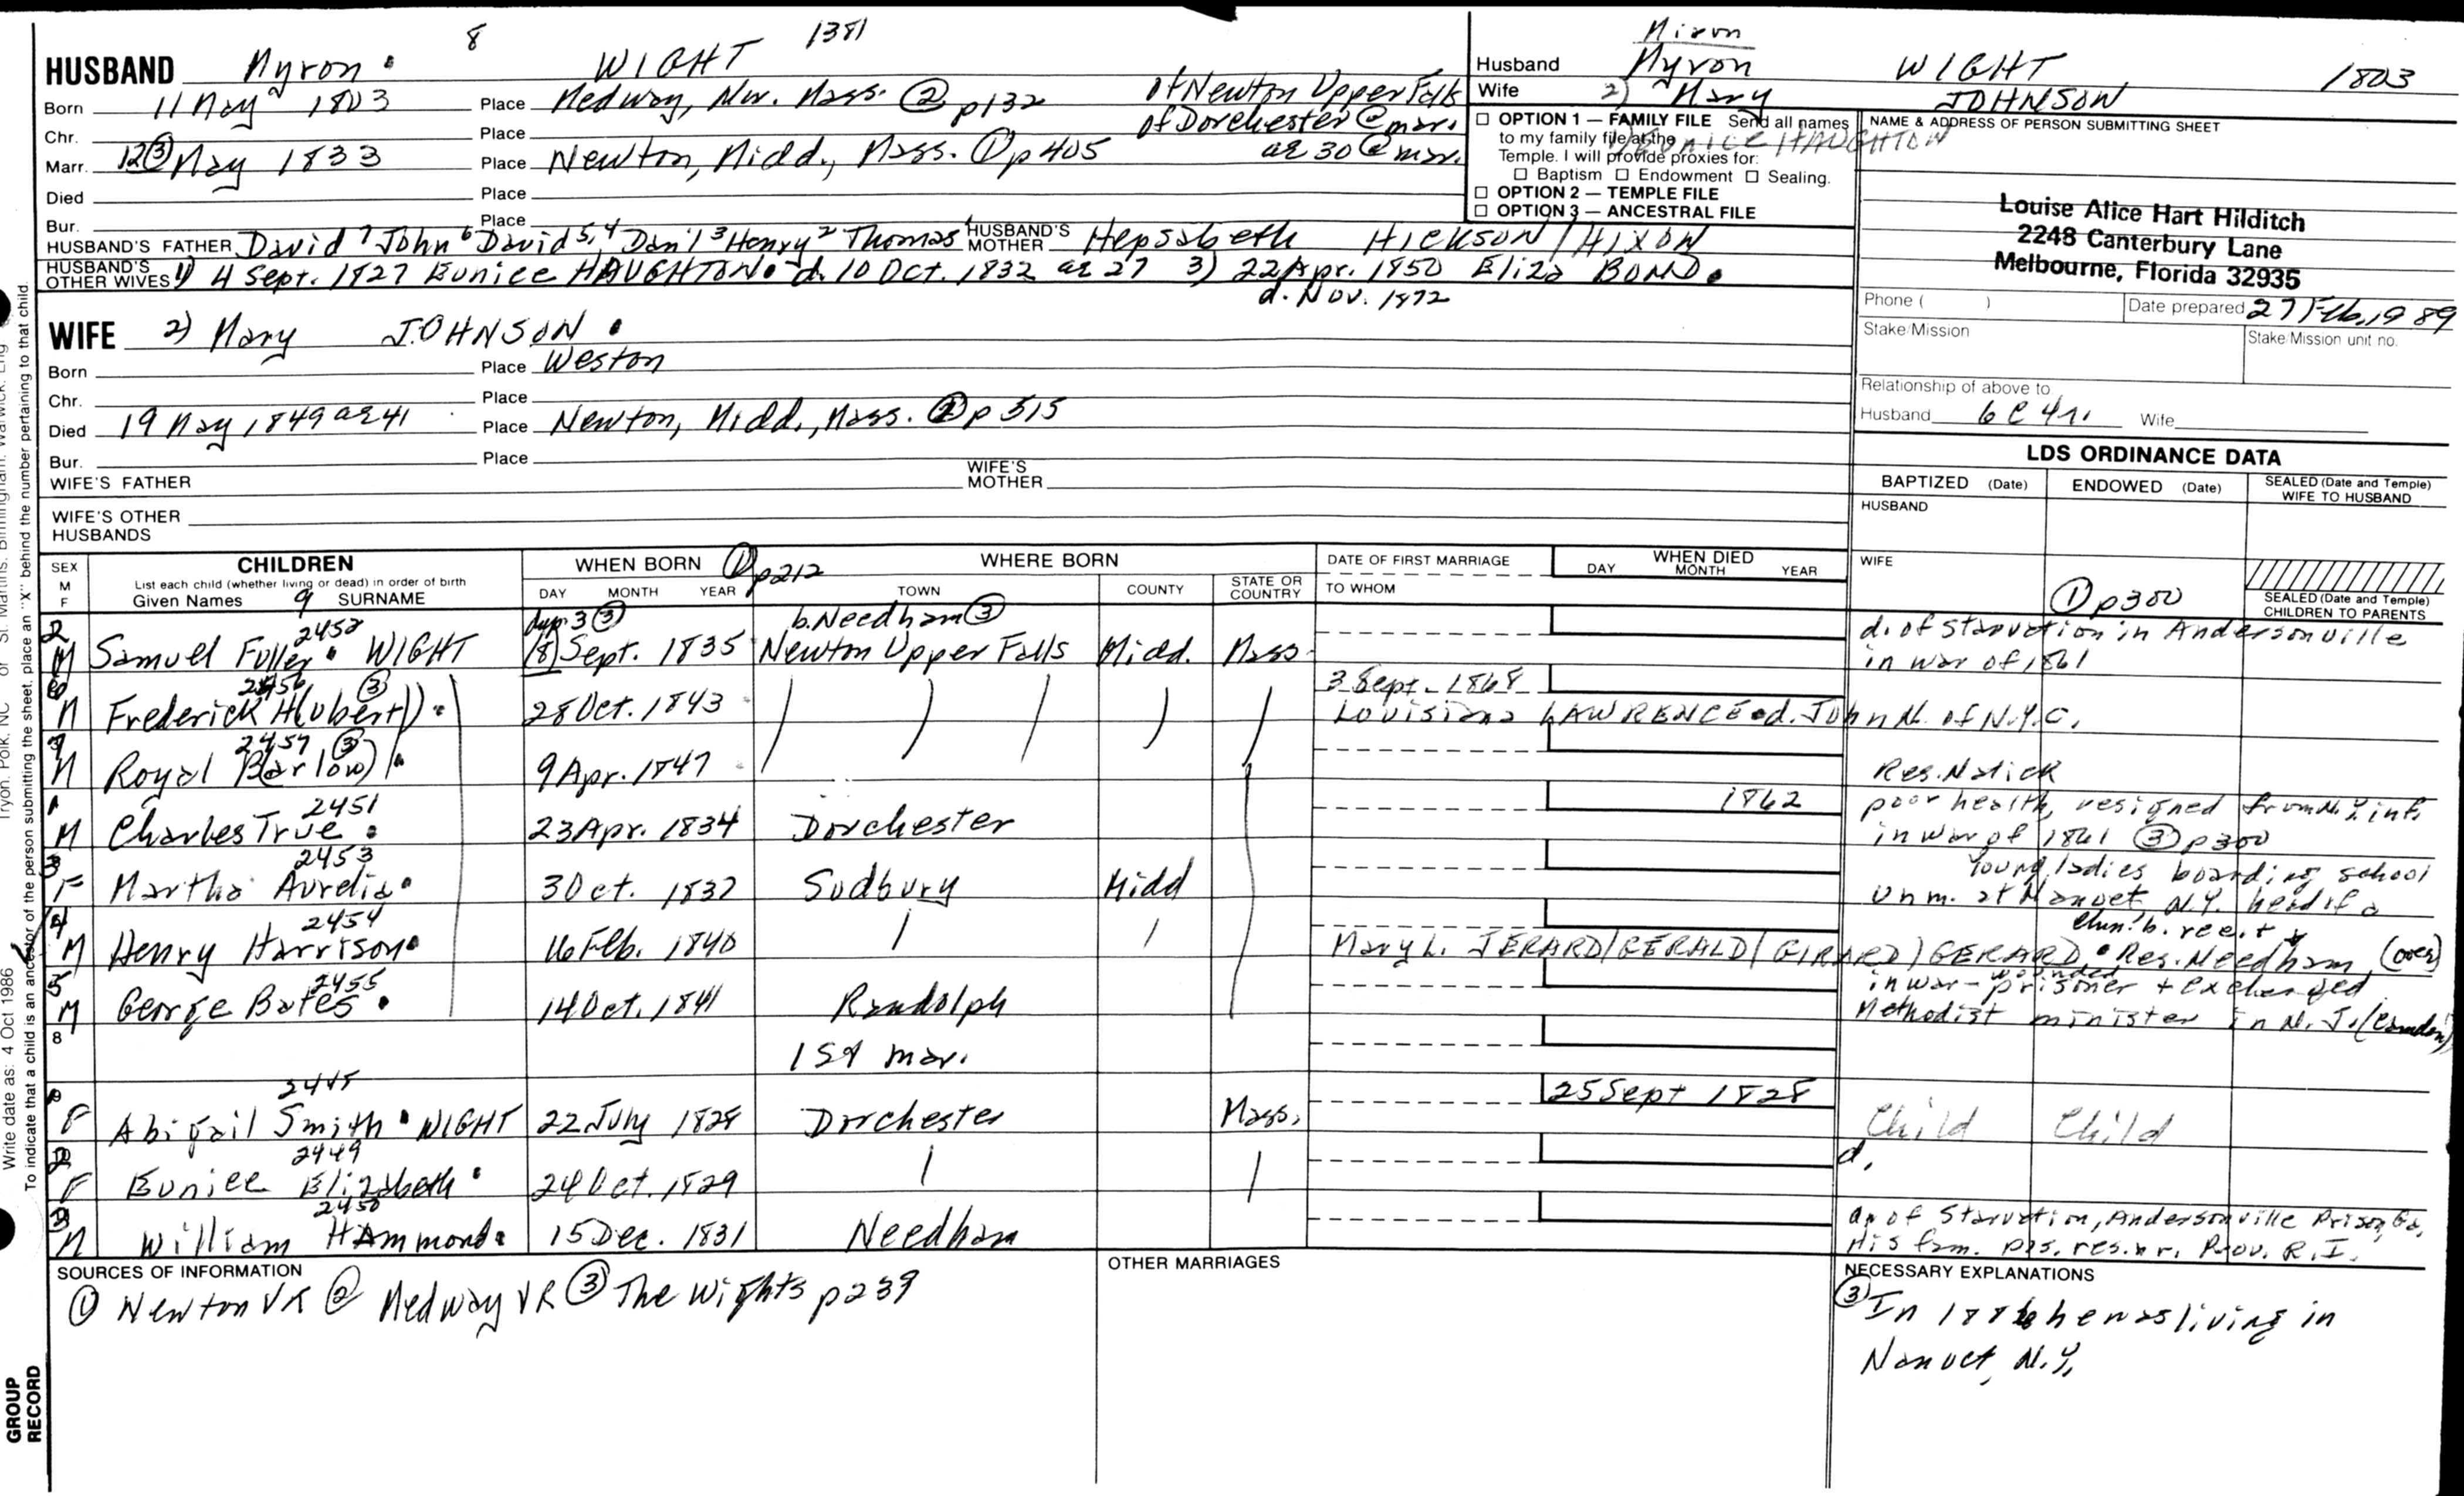 8 1381
HUSBAND Myron WIGHT
Born 11 May 1803 Place Medway, Nor. Mass. ② p132 of Newton Upper Falls
Chr. Place of Dorchester @ mar.
Marr. 12③ May 1833 Place Newton, Midd., Mass. ① p405 ae 30 @ mar.
Died Place
Bur. Place
HUSBAND'S FATHER David 7 John 6 David 5,4 Dan'l 3 Henry 2 Thomas 1 HUSBAND'S MOTHER Hepsabeth HICKSON/HIXON
HUSBAND'S OTHER WIVES 1) 4 Sept. 1827 Eunice HAUGHTON. d. 10 Oct. 1832 ae 27 3) 22 Apr. 1850 Eliza BOND.
d. Nov. 1872
WIFE 2) Mary JOHNSON.
Born Place Weston
Chr. Place
Died 19 May 1849 ae 41 Place Newton, Midd., Mass. ① p 515
Bur. Place
WIFE'S FATHER WIFE'S MOTHER
WIFE'S OTHER HUSBANDS
Nixon
Husband Myron WIGHT 1803
Wife 2) Mary JOHNSON
Eunice HAUGHTON
☐ OPTION 1 — FAMILY FILE Send all names
to my family file at the
Temple. I will provide proxies for:
☐ Baptism ☐ Endowment ☐ Sealing.
☐ OPTION 2 — TEMPLE FILE
☐ OPTION 3 — ANCESTRAL FILE
NAME & ADDRESS OF PERSON SUBMITTING SHEET
Louise Alice Hart Hilditch
2248 Canterbury Lane
Melbourne, Florida 32935
Phone ( ) Date prepared 27 Feb. 1989
Stake/Mission Stake/Mission unit no.
Relationship of above to
Husband 6C4r. Wife
LDS ORDINANCE DATA
BAPTIZED (Date) ENDOWED (Date) SEALED (Date and Temple) WIFE TO HUSBAND
HUSBAND
WIFE
① p300 SEALED (Date and Temple) CHILDREN TO PARENTS
SEX M F CHILDREN WHEN BORN ① p212 WHERE BORN DATE OF FIRST MARRIAGE WHEN DIED
List each child (whether living or dead) in order of birth
Given Names 9 SURNAME DAY MONTH YEAR TOWN COUNTY STATE OR COUNTRY TO WHOM DAY MONTH YEAR
2 2452 3 ③ b. Needham ③
M Samuel Fuller WIGHT 18 Sept. 1835 Newton Upper Falls Midd. Mass. d. of starvation in Andersonville
in war of 1861
6 2456 ③ 3 Sept. 1868
M Frederick H(ubert) 28 Oct. 1843 Louisiana LAWRENCE d. John M. of N.Y.C.
7 2457 ③
M Royal B(arlow) 9 Apr. 1847 Res. Natick
1 2451 1862 poor health, resigned from N.Y. inf.
M Charles True 23 Apr. 1834 Dorchester in war of 1861 ③ p300
3 2453 Young ladies boarding school
F Martha Aurelia 3 Oct. 1837 Sudbury Midd Unm. at Nanuet N.Y. head of a
4 2454
M Henry Harrison 16 Feb. 1840 Mary L. JERARD/GERALD/GIRARD/GERARD. Res. Needham (over)
5 2455 in war - wounded prisoner + exchanged
M George Bates 14 Oct. 1841 Randolph Methodist minister in N.J. (Camden)
8
1st mar.
1 2448 25 Sept 1828
F Abigail Smith WIGHT 22 July 1828 Dorchester Mass. Child Child
2 2449 d.
F Eunice Elizabeth 24 Oct. 1829
3 2450
M William HAmmond 15 Dec. 1831 Needham d. of starvation, Andersonville Prison, Ga.
His fam. res. nr. Prov. R.I.
SOURCES OF INFORMATION
① Newton VR ② Medway VR ③ The Wights p239
OTHER MARRIAGES
NECESSARY EXPLANATIONS
③ In 1886 he was living in
Nanuet, N.Y.
Write date as: 4 Oct 1986
To indicate that a child is an ancestor of the person submitting the sheet, place an "X" behind the number pertaining to that child.
GROUP
RECORD